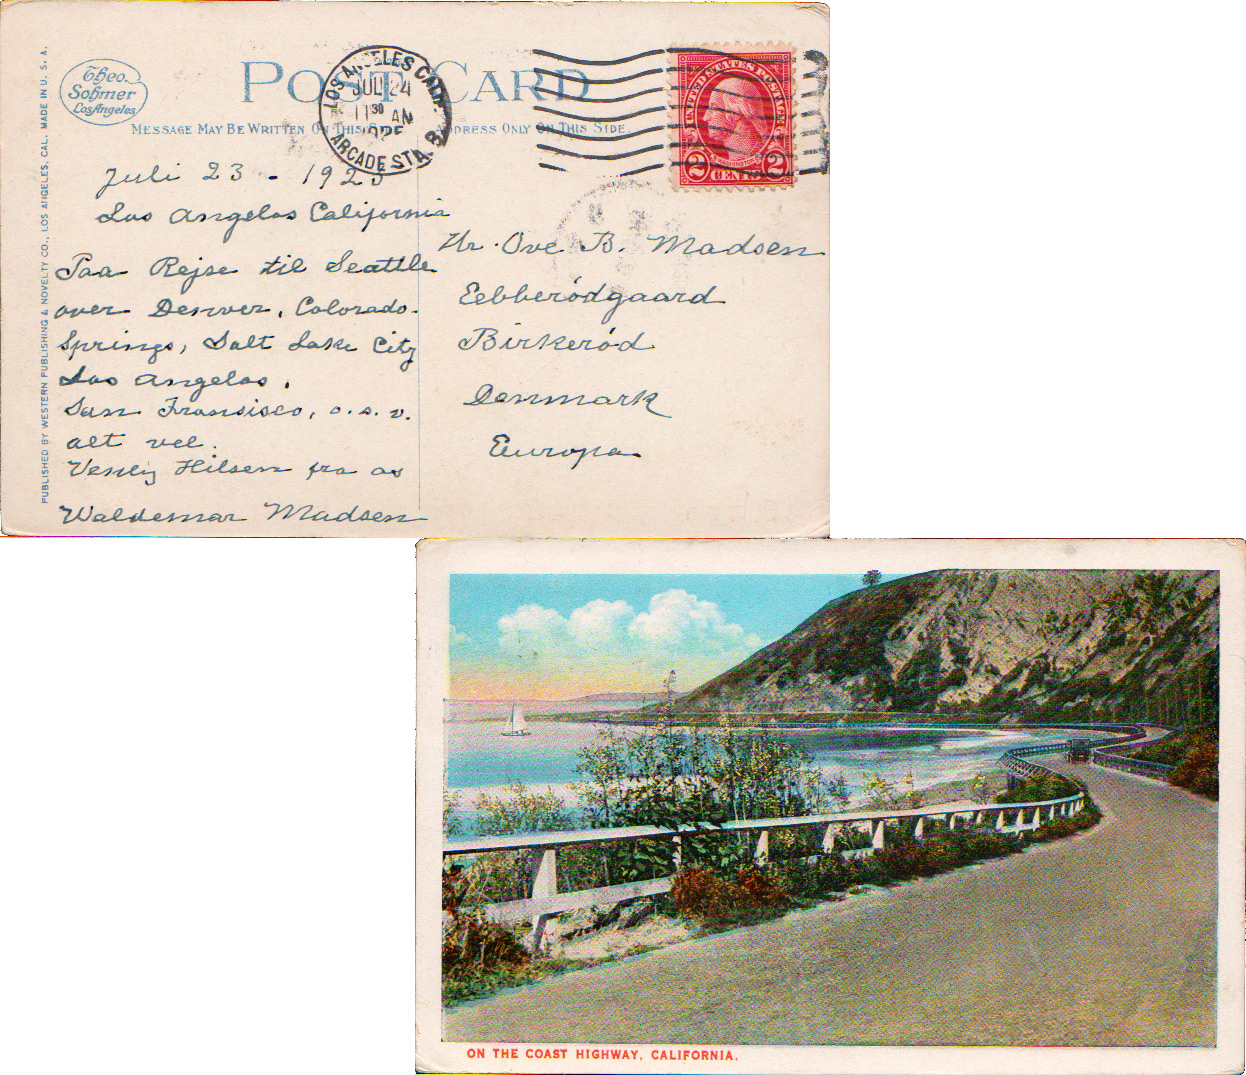 Theo.
Sohmer
Los Angeles
POST CARD
MESSAGE MAY BE WRITTEN ON THIS SIDE
ADDRESS ONLY ON THIS SIDE.
LOS ANGELES CALIF.
JUL 24
11 30 AM
1925
ARCADE STA. B
UNITED STATES POSTAGE
WASHINGTON
2 CENTS 2
PUBLISHED BY WESTERN PUBLISHING & NOVELTY CO., LOS ANGELES, CAL. MADE IN U. S. A.
Juli 23 - 1925
Los Angelos California
Paa Rejse til Seattle
over Denver, Colorado-
Springs, Salt Lake City
Los Angelos,
San Fransisco, o.s.v.
alt vel.
Venlig Hilsen fra os
Waldemar Madsen
Hr. Ove B. Madsen
Eebberödgaard
Birkeröd
Denmark
Europa
ON THE COAST HIGHWAY, CALIFORNIA.